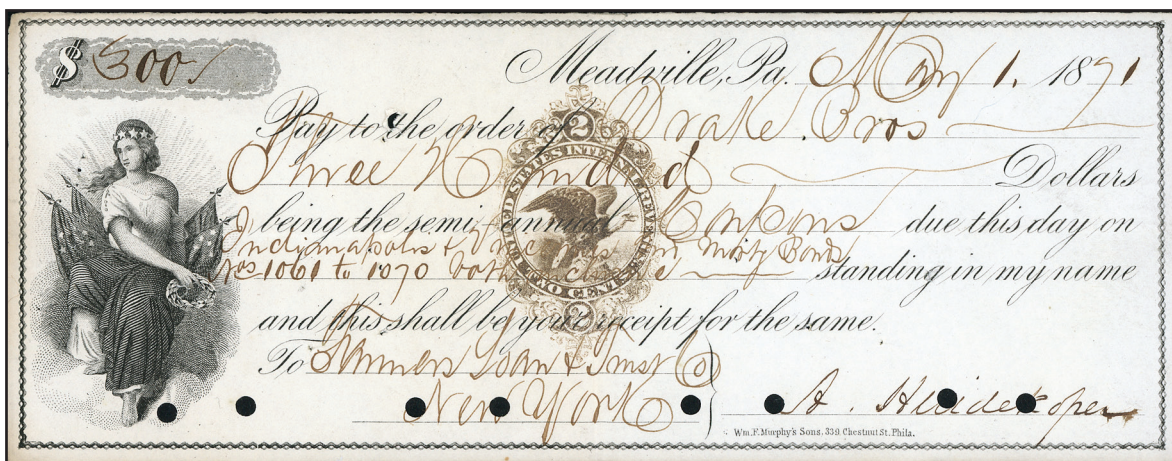 $ 300/
Meadville, Pa. May 1. 1871
Pay to the order of Drake Bros
Three Hundred Dollars
being the semi annual Coupons due this day on
Indianapolis & Vincennes Mortg Bonds
Nos 1061 to 1070 both inclusive standing in my name
and this shall be your receipt for the same.
To Farmers Loan & Trust Co
New York
A. Huidekoper
Wm. F. Murphy's Sons. 339 Chestnut St. Phila.
2
UNITED STATES INTERNAL REVENUE
TWO CENTS
2